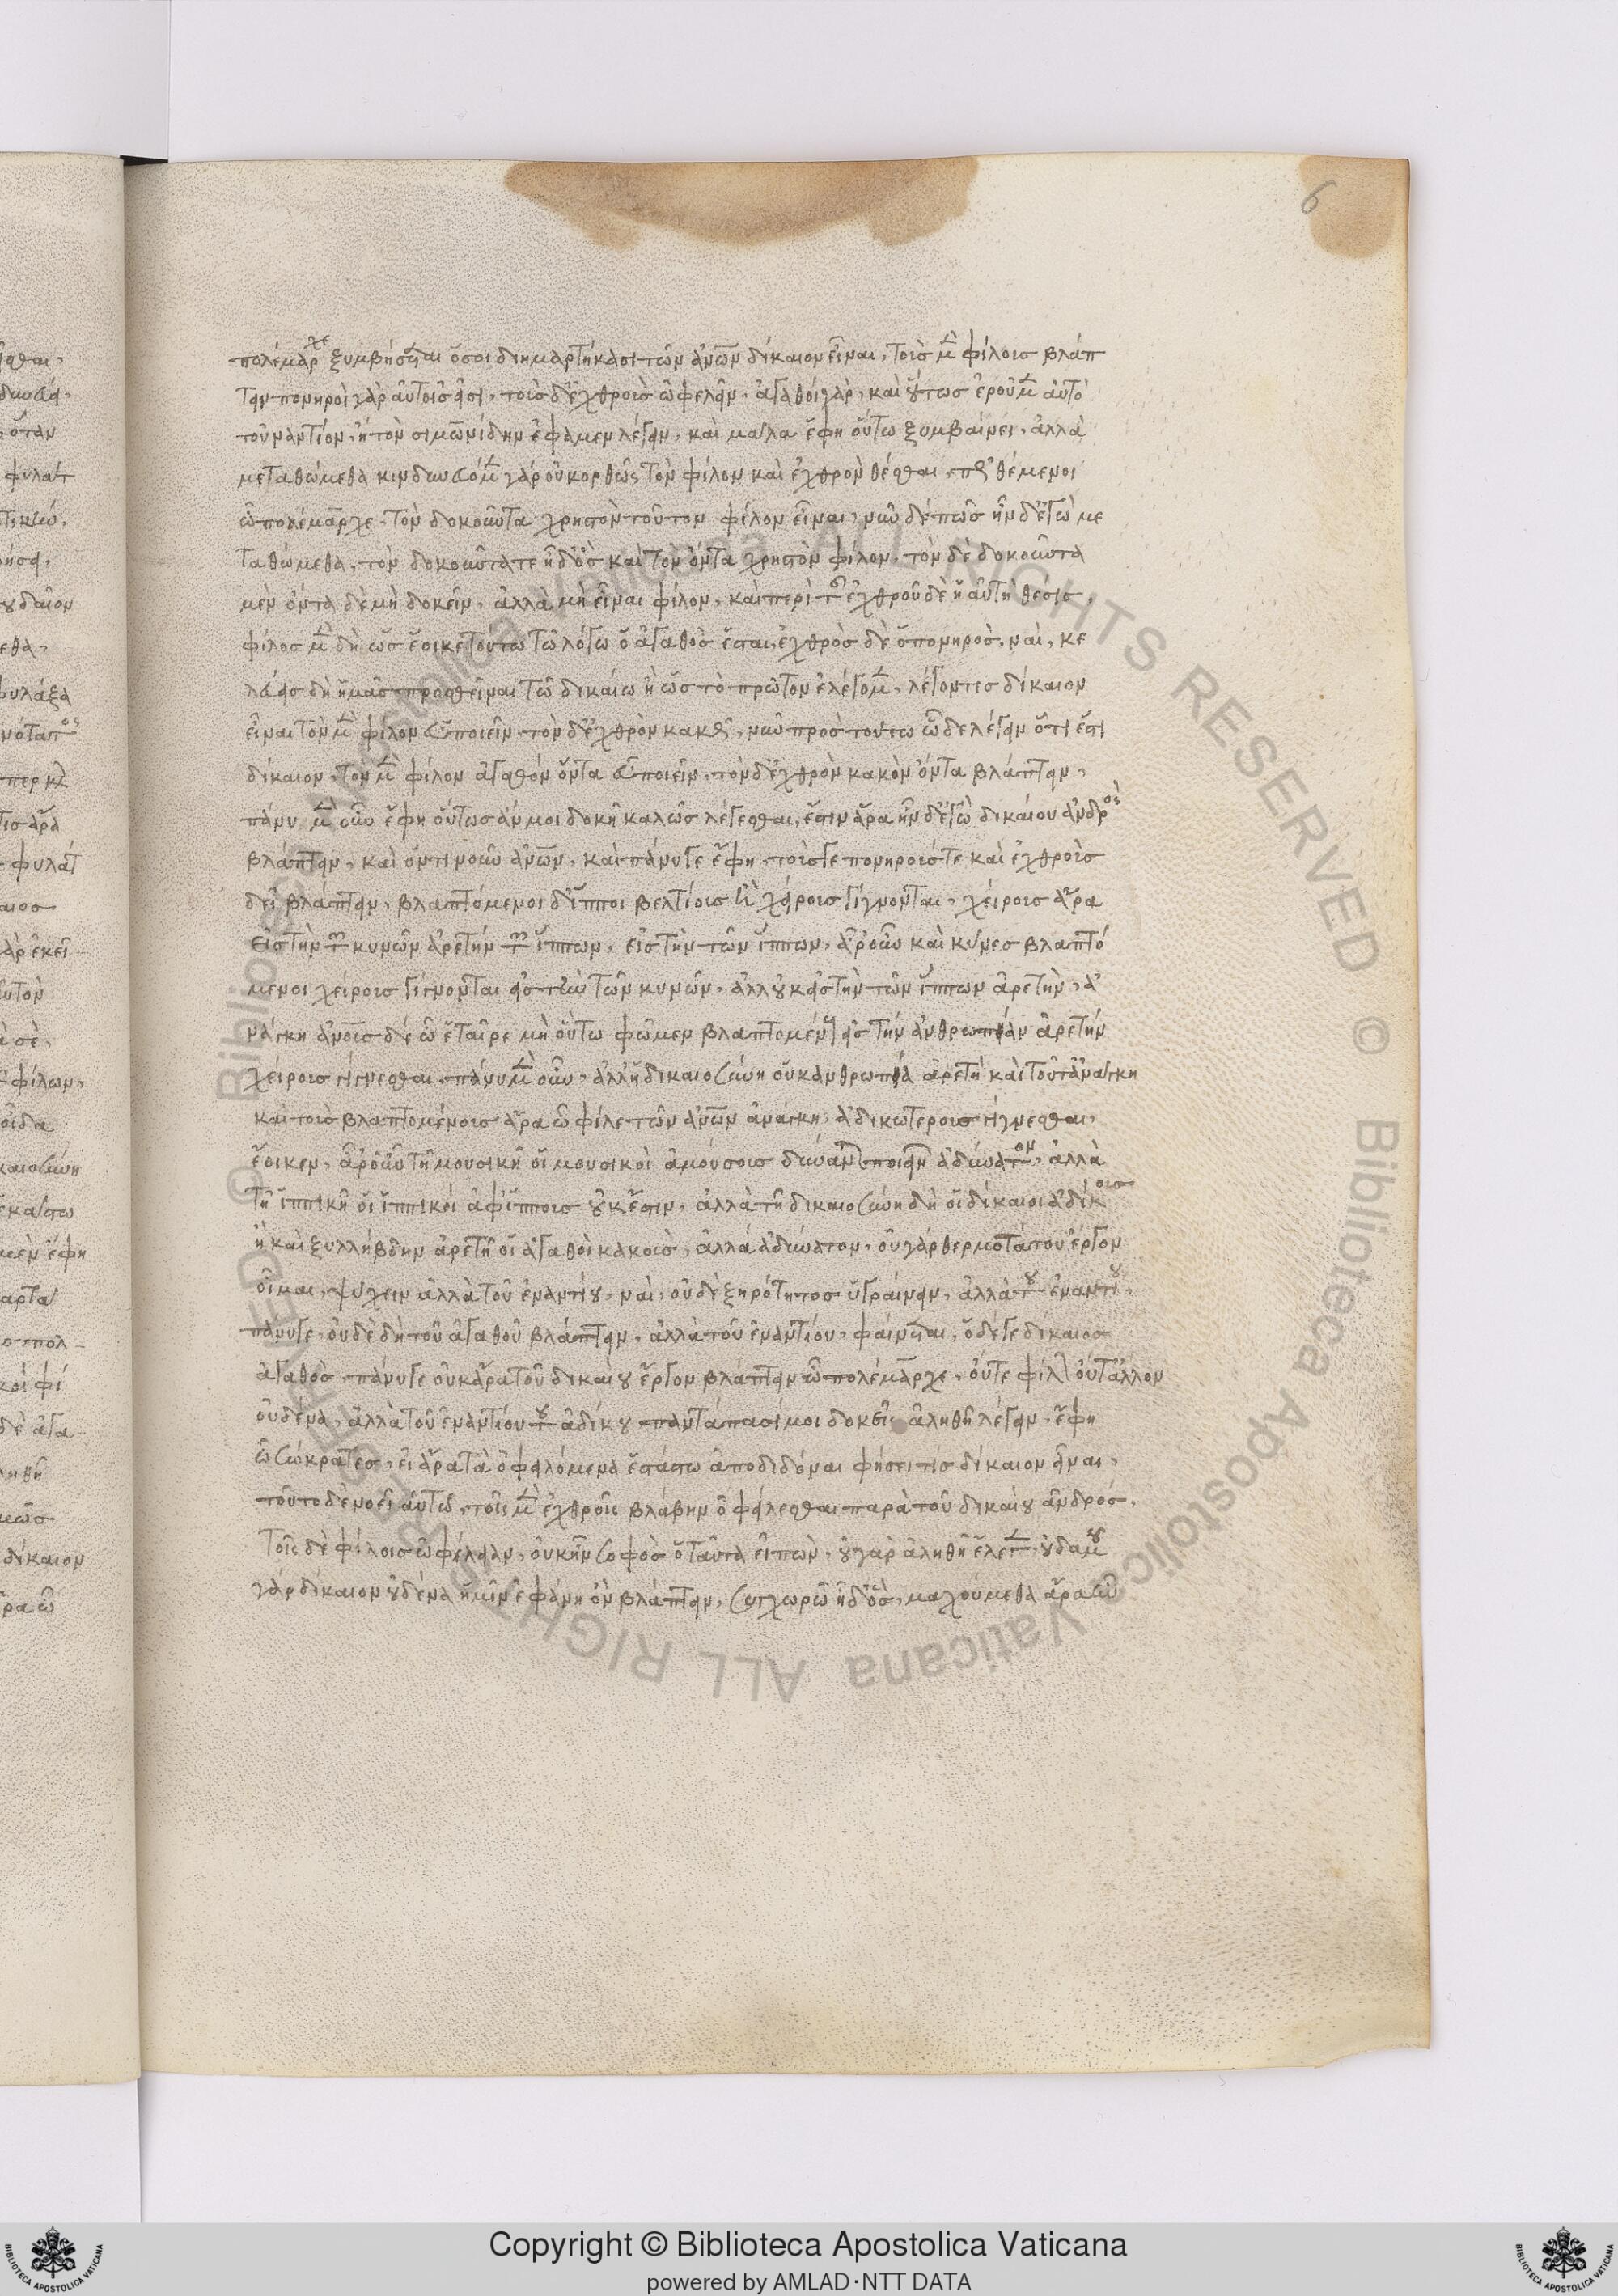 6
πολέμαρχε ξυμβήσεται ὅσοι διημαρτήκασι τῶν ἀνων δίκαιον εἶναι, τοῖσ μὲν φίλοισ βλάπ
τειν πονηροὶ γὰρ αὐτοῖσ εἰσι, τοῖσ δ' ἐχθροῖσ ὠφελεῖν, ἀγαθοὶ γάρ, καὶ οὕτωσ ἐροῦμεν αὐτὸ
τοὐναντίον, ἢ τὸν σιμωνίδην ἔφαμεν λέγειν, καὶ μάλα ἔφη οὕτω ξυμβαίνει, ἀλλὰ
μεταθώμεθα κινδυνεύομεν γὰρ οὐκ ὀρθῶς τὸν φίλον καὶ ἐχθρὸν θέσθαι, πῶς θέμενοι
ὦ πολέμαρχε, τὸν δοκοῦντα χρηστὸν τοῦτον φίλον εἶναι, νῦν δὲ πῶσ ἦν δ' ἐγὼ με
ταθώμεθα, τὸν δοκοῦντά τε ἦ δ' ὃσ καὶ τὸν ὄντα χρηστὸν φίλον, τὸν δὲ δοκοῦντα
μὲν ὄντα δὲ μὴ δοκεῖν, ἀλλὰ μὴ εἶναι φίλον, καὶ περὶ τοῦ ἐχθροῦ δὲ ἡ αὐτὴ θέσισ,
φίλοσ μὲν δὴ ὡσ ἔοικε τούτω τῶ λόγω ὁ ἀγαθὸσ ἔσται, ἐχθρὸσ δὲ ὁ πονηρόσ, ναί, κε
λεύεισ δὴ ἡμᾶσ προσθεῖναι τῶ δικαίω ἢ ὡσ τὸ πρῶτον ἐλέγομεν, λέγοντεσ δίκαιον
εἶναι τὸν μὲν φίλον εὖ ποιεῖν, τὸν δ' ἐχθρὸν κακῶς, νῦν πρὸσ τούτω ὧδε λέγειν ὅτι ἔστι
δίκαιον, τὸν μὲν φίλον ἀγαθὸν ὄντα εὖ ποιεῖν, τὸν δ' ἐχθρὸν κακὸν ὄντα βλάπτειν,
πάνυ μὲν οὖν ἔφη οὕτωσ ἄν μοι δοκῆ καλῶσ λέγεσθαι, ἔστιν ἄρα ἦν δ' ἐγὼ δικαίου ἀνδρὸς
βλάπτειν, καὶ ὁντινοῦν ἀνων, καὶ πάνυ γε ἔφη, τούσ γε πονηρούσ τε καὶ ἐχθροὺσ
δεῖ βλάπτειν, βλαπτόμενοι δ' ἵπποι βελτίουσ ἢ χείρουσ γίγνονται, χείρουσ ἄρα
εἰσ τὴν τῶν κυνῶν ἀρετὴν τῶν ἵππων, εἰσ τὴν τῶν ἵππων, ἆρ' οὖν καὶ κύνεσ βλαπτό
μενοι χείρουσ γίγνονται εἰσ τὴν τῶν κυνῶν, ἀλλ' οὐκ εἰσ τὴν τῶν ἵππων ἀρετήν, ἀ
νάγκη ἀνουσ δὲ ὦ ἑταῖρε μὴ οὕτω φῶμεν βλαπτομένους εἰσ τὴν ἀνθρωπείαν ἀρετὴν
χείρουσ γίγνεσθαι, πάνυ μὲν οὖν, ἀλλ' ἡ δικαιοσύνη οὐκ ἀνθρωπεία ἀρετὴ καὶ τοῦτ' ἀνάγκη
καὶ τοὺσ βλαπτομένουσ ἄρα ὦ φίλε τῶν ἀνων ἀνάγκη, ἀδικωτέρουσ γίγνεσθαι,
ἔοικεν, ἆρ' οὖν τῆ μουσικῆ οἱ μουσικοὶ ἀμούσουσ δύνανται ποιεῖν ἀδύνατον, ἀλλὰ
τῆ ἱππικῆ οἱ ἱππικοὶ ἀφίππουσ οὐκ ἔστιν, ἀλλὰ τῆ δικαιοσύνη δὴ οἱ δίκαιοι ἀδίκουσ
ἢ καὶ ξυλλήβδην ἀρετῆ οἱ ἀγαθοὶ κακούσ, ἀλλὰ ἀδύνατον, οὐ γὰρ θερμότατου ἔργον
οἶμαι, ψύχειν ἀλλὰ τοῦ ἐναντίου, ναί, οὐδὲ ξηρότητοσ ὑγραίνειν, ἀλλὰ τοῦ ἐναντίου,
πάνυ γε, οὐδὲ δὴ τοῦ ἀγαθοῦ βλάπτειν, ἀλλὰ τοῦ ἐναντίου, φαίνεται, ὁ δέ γε δίκαιοσ
ἀγαθόσ, πάνυ γε οὐκ ἄρα τοῦ δικαίου ἔργον βλάπτειν ὦ πολέμαρχε, οὔτε φίλον οὔτ' ἄλλον
οὐδένα, ἀλλὰ τοῦ ἐναντίου τοῦ ἀδίκου παντάπασί μοι δοκεῖς ἀληθῆ λέγειν, ἔφη
ὦ σώκρατεσ, εἰ ἄρα τὰ ὀφειλόμενα ἑκάστω ἀποδιδόναι φήσει τίσ δίκαιον εἶναι,
τοῦτο δὲ νοεῖ αὐτῶ, τοῖς μὲν ἐχθροῖς βλάβην ὀφείλεσθαι παρὰ τοῦ δικαίου ἀνδρόσ,
τοῖς δὲ φίλοισ ὠφέλειαν, οὐκ ἦν σοφὸσ ὁ ταῦτα εἰπών, οὐ γὰρ ἀληθῆ ἔλεγεν, οὐδαμοῦ
γὰρ δίκαιον οὐδένα ἡμῖν ἐφάνη ὂν βλάπτειν, συγχωρῶ ἦ δ' ὅσ, μαχούμεθα ἄρα
Copyright © Biblioteca Apostolica Vaticana
powered by AMLAD·NTT DATA